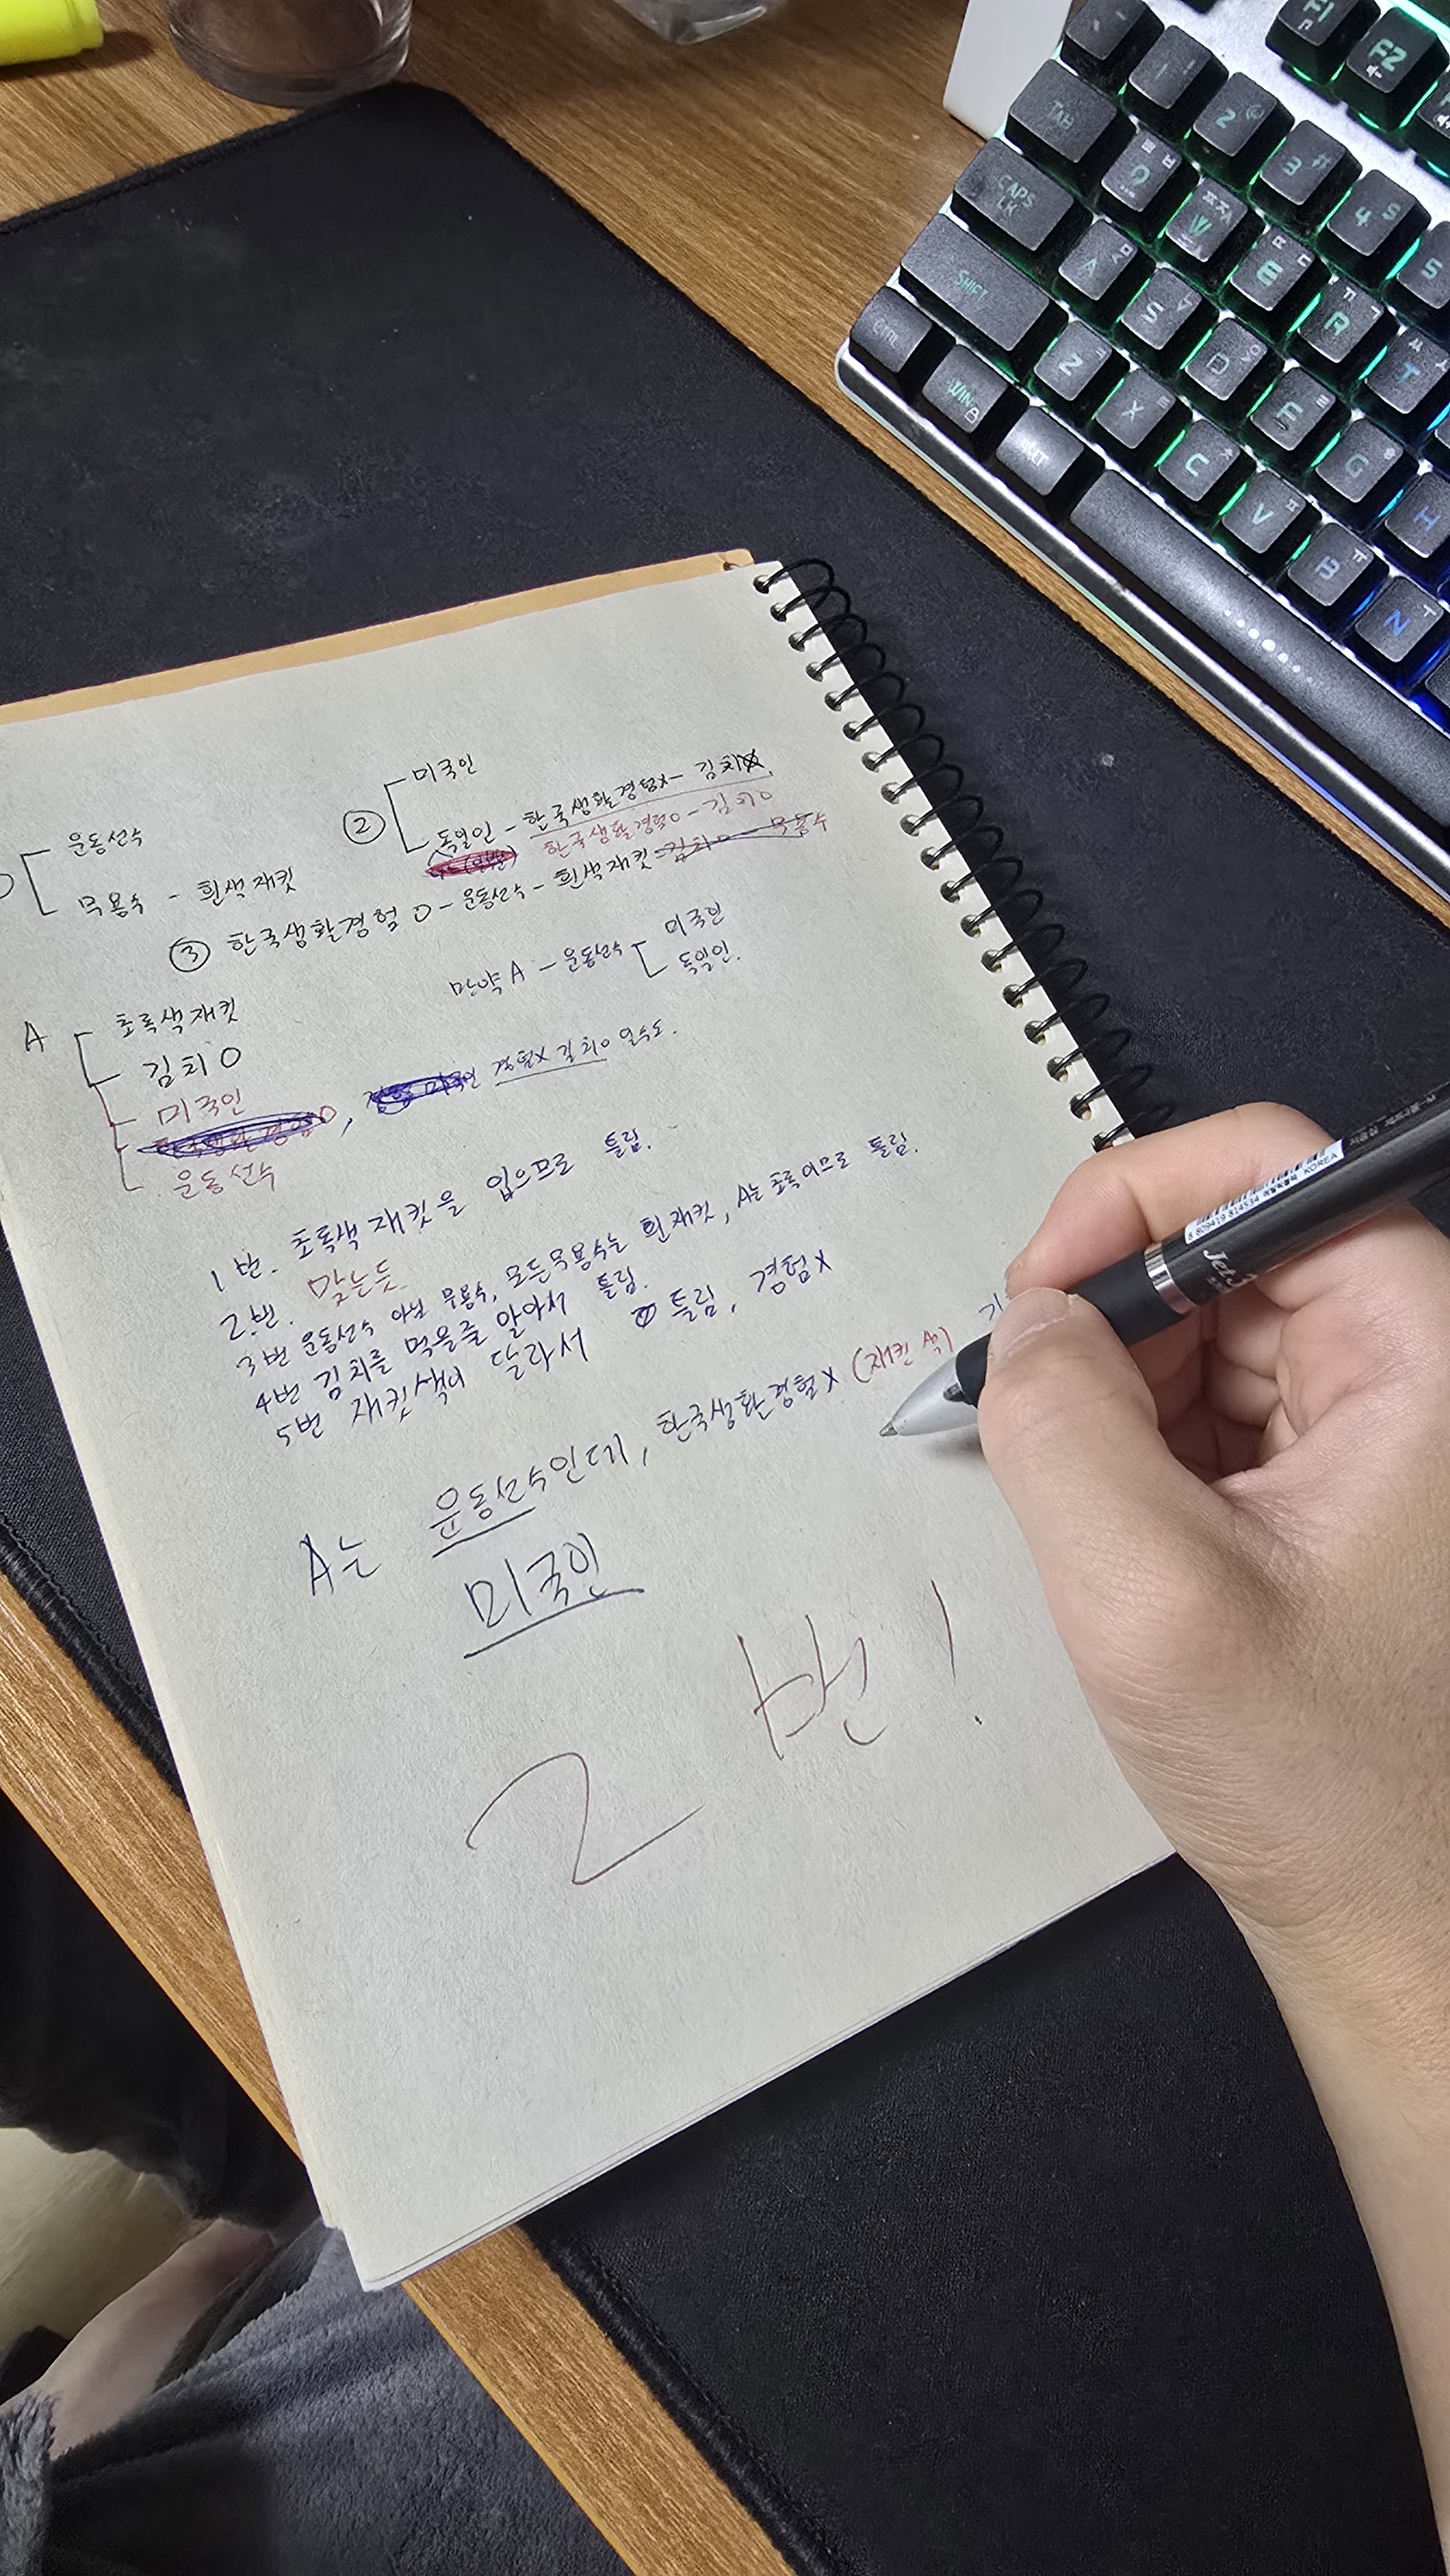 운동선수
무용수 - 흰색재킷
② 미국인
독일인 - 한국생활경험X - 김치X
한국생활경험O - 김치O
③ 한국생활경험 O - 운동선수 - 흰색재킷 - 김치O - 무용수
만약 A - 운동선수 미국인
독일인.
A 초록색재킷
김치 O
미국인
한국생활경험O, 경험X 김치O 일수도.
운동선수
1번. 초록색 재킷을 입으므로 틀림.
2번. 맞는듯.
3번 운동선수 아님 무용수, 모든무용수는 흰재킷, A는 초록이므로 틀림.
4번 김치를 먹을줄 알아서 틀림.
5번 재킷색이 달라서 틀림, 경험X
A는 운동선수인데, 한국생활경험X (재킷 색)
미국인
2 번!
8 809419 814534
KOREA
Jet
TAB
CAPS LK
SHIFT
CTRL
WIN
ALT
F1
F2
1 !
2 @
3 #
4 $
5
Q ㅂ ㅃ
W ㅈ ㅉ
E ㄷ ㄸ
R ㄱ ㄲ
T ㅅ ㅆ
A ㅁ
S ㄴ
D ㅇ
F ㄹ
G ㅎ
H
Z ㅋ
X ㅌ
C ㅊ
V ㅍ
B ㅠ
N ㅜ